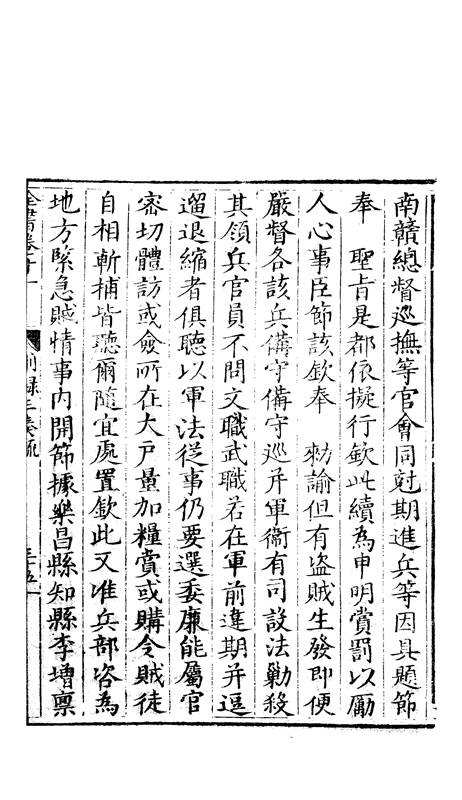 南贛總督巡撫等官會同尅期進兵等因具題節
奉　聖旨是都依擬行欽此續為申明賞罰以勵
人心事臣節該欽奉　勑諭但有盜賊生發即便
嚴督各該兵備守備守巡并軍衞有司設法勦殺
其領兵官員不問文職武職若在軍前違期并逗
遛退縮者俱聽以軍法從事仍要選委廉能屬官
密切體訪或僉所在大戶量加糧賞或購令賊徒
自相斬捕皆聽爾隨宜處置欽此又准兵部咨為
地方緊急賊情事內開節據樂昌縣知縣李增稟
全書卷十一　別錄三奏疏